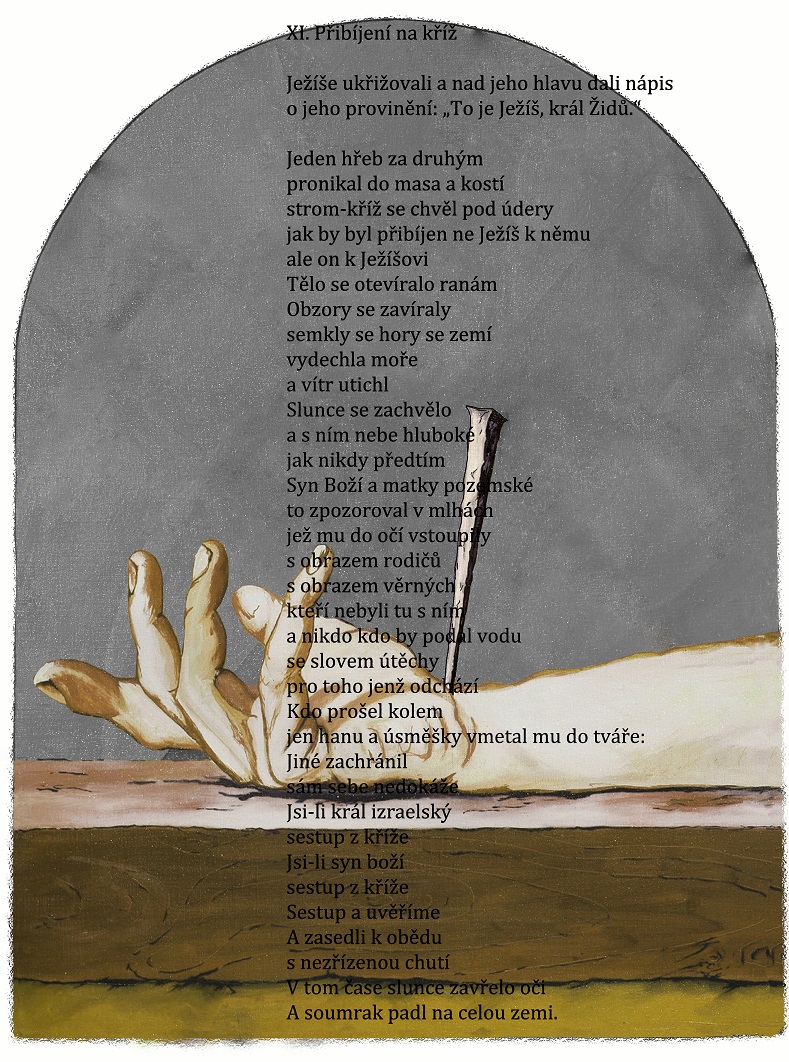 XI. Přibíjení na kříž
Ježíše ukřižovali a nad jeho hlavu dali nápis
o jeho provinění: „To je Ježíš, král Židů.“
Jeden hřeb za druhým
pronikal do masa a kostí
strom-kříž se chvěl pod údery
jak by byl přibíjen ne Ježíš k němu
ale on k Ježíšovi
Tělo se otevíralo ranám
Obzory se zavíraly
semkly se hory se zemí
vydechla moře
a vítr utichl
Slunce se zachvělo
a s ním nebe hluboké
jak nikdy předtím
Syn Boží a matky pozemské
to zpozoroval v mlhách
jež mu do očí vstoupily
s obrazem rodičů
s obrazem věrných
kteří nebyli tu s ním
a nikdo kdo by podal vodu
se slovem útěchy
pro toho jenž odchází
Kdo prošel kolem
jen hanu a úsměšky vmetal mu do tváře:
Jiné zachránil
sám sebe nedokáže
Jsi-li král izraelský
sestup z kříže
Jsi-li syn boží
sestup z kříže
Sestup a uvěříme
A zasedli k obědu
s nezřízenou chutí
V tom čase slunce zavřelo oči
A soumrak padl na celou zemi.